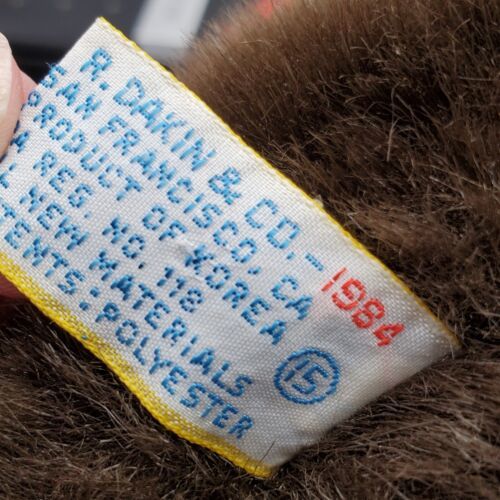 R. DAKIN & CO.- 1984
SAN FRANCISCO, CA
PRODUCT OF KOREA
REG. NO. 118 15
NEW MATERIALS
TENTS: POLYESTER